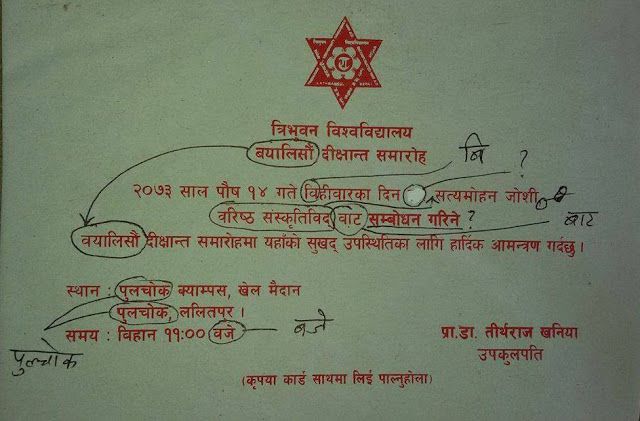 त्रिभुवन विश्वविद्यालय
बयालिसौं दीक्षान्त समारोह
बि ?
२०७३ साल पौष १४ गते विहीवारका दिन सत्यमोहन जोशी
वरिष्ठ संस्कृतिविद् वाट सम्बोधन गरिने ? बाट
वयालिसौं दीक्षान्त समारोहमा यहाँको सुखद् उपस्थितिका लागि हार्दिक आमन्त्रण गर्दछु ।
स्थान : पुलचोक क्याम्पस, खेल मैदान
पुलचोक, ललितपुर ।
समय : बिहान ११:०० वजे बजे
पुल्चोक
प्रा.डा. तीर्थराज खनिया
उपकुलपति
(कृपया कार्ड साथमा लिई पाल्नुहोला)